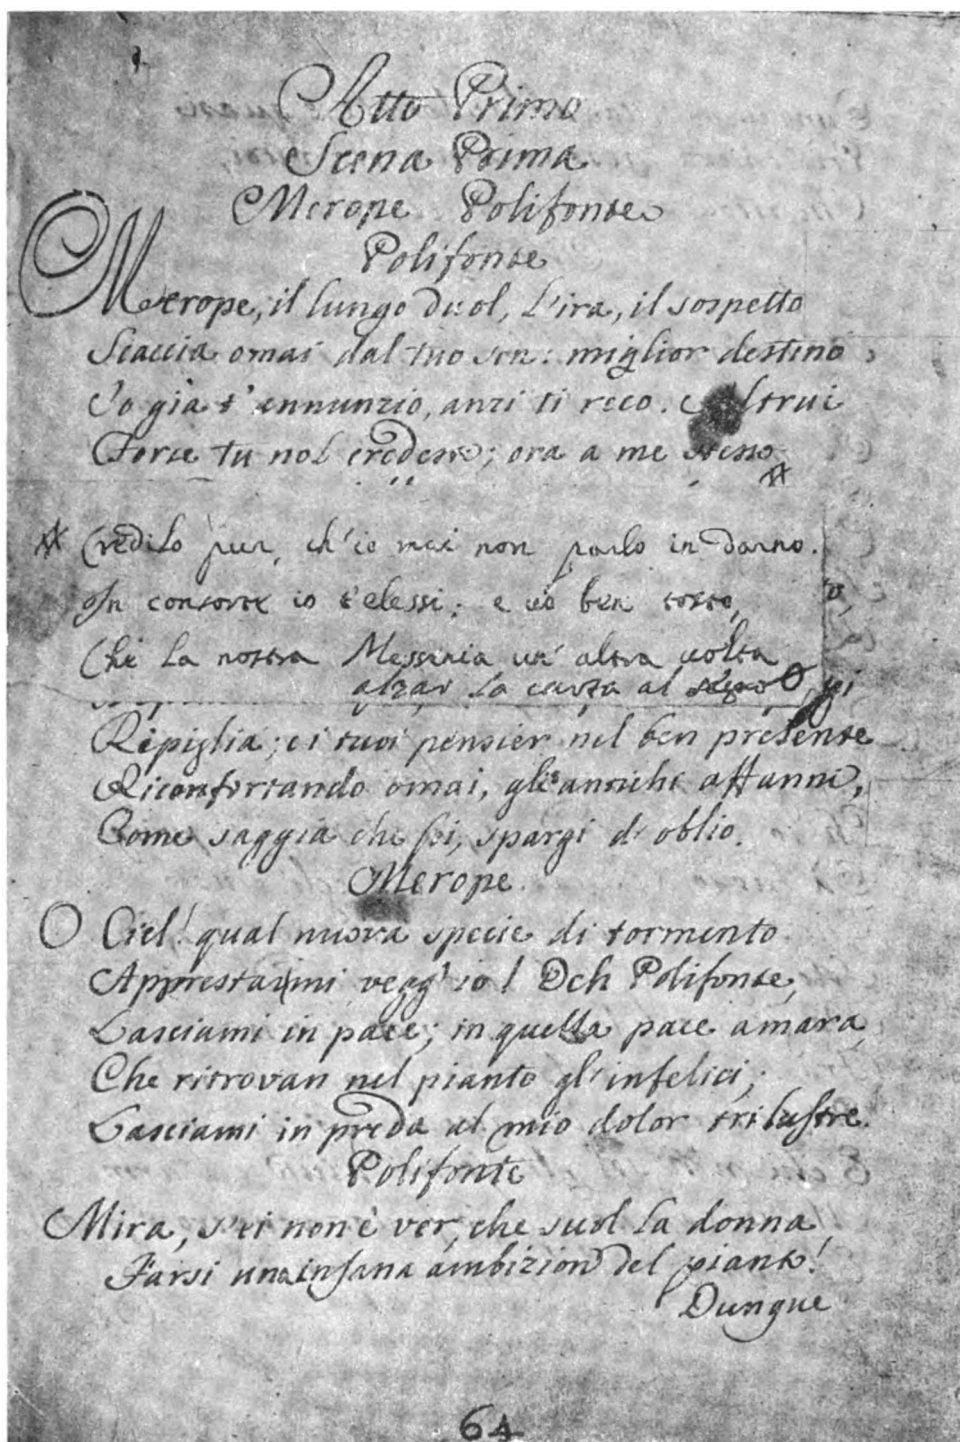 Atto Primo
Scena Prima
Merope Polifonte
Polifonte
Merope, il lungo duol, l'ira, il sospetto
Scaccia omai dal tuo sen: miglior destino
Io già t'annunzio, anzi ti reco. Altrui
Forse tu nol credesti; ora a me stesso
Credilo pur, ch'io mai non parlo in darno.
In consorte io t'elessi; e vò ben tosto,
Che la nostra Messenia un' altra volta
alzar la carta al segno
Ripiglia; e i tuoi pensier nel ben presente
Riconfortando omai, gl'antichi affanni,
Come saggia che sei, spargi d'oblio.
Merope.
O Ciel! qual nuova specie di tormento
Apprestarmi vegg'io! Deh Polifonte,
Lasciami in pace; in quella pace amara,
Che ritrovan nel pianto gl'infelici;
Lasciami in preda al mio dolor trilustre.
Polifonte
Mira, s'ei non è ver, che suol la donna
Farsi una insana ambizion del pianto!
Dunque
64